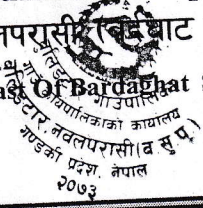 नवलपरासी (बर्दघाट
East Of Bardaghat
गाउँपालिका
गाउँ कार्यपालिकाको कार्यालय
नवलपरासी (ब.सु.प.)
गण्डकी प्रदेश, नेपाल
२०७३